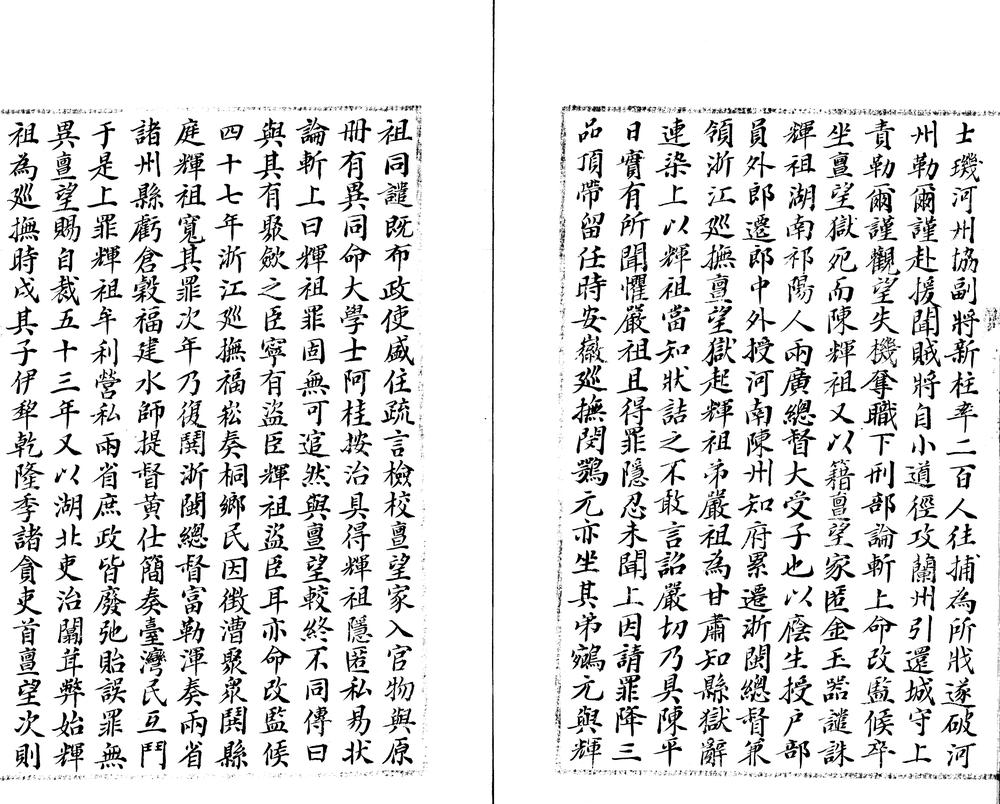 士璣河州協副將新柱率二百人往捕為所戕遂破河
州勒爾謹赴援聞賊將自小道徑攻蘭州引還城守上
責勒爾謹觀望失機奪職下刑部論斬上命改監候卒
坐亶望獄死而陳輝祖又以籍亶望家匿金玉器譴誅
輝祖湖南祁陽人兩廣總督大受子也以廕生授戶部
員外郎遷郎中外授河南陳州知府累遷浙閩總督兼
領浙江廵撫亶望獄起輝祖弟嚴祖為甘肅知縣獄辭
連染上以輝祖當知狀詰之不敢言詔嚴切乃具陳平
日實有所聞懼嚴祖且得罪隱忍未聞上因請罪降三
品頂帶留任時安徽廵撫閔鶚元亦坐其弟鵷元與輝
祖同譴既布政使盛住疏言檢校亶望家入官物與原
冊有異同命大學士阿桂按治具得輝祖隱匿私易狀
論斬上曰輝祖罪固無可逭然與亶望較終不同傳曰
與其有聚斂之臣寧有盜臣輝祖盜臣耳亦命改監候
四十七年浙江廵撫福崧奏桐鄉民因徵漕聚衆鬨縣
庭輝祖寬其罪次年乃復鬨浙閩總督富勒渾奏兩省
諸州縣虧倉穀福建水師提督黃仕簡奏臺灣民互鬥
于是上罪輝祖牟利營私兩省庶政皆廢弛貽誤罪無
異亶望賜自裁五十三年又以湖北吏治闒茸弊始輝
祖為廵撫時戍其子伊犂乾隆季諸貪吏首亶望次則